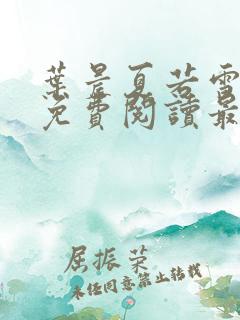 葉昊夏若雪
免費閱讀最
屈振榮
未经同意禁止转载